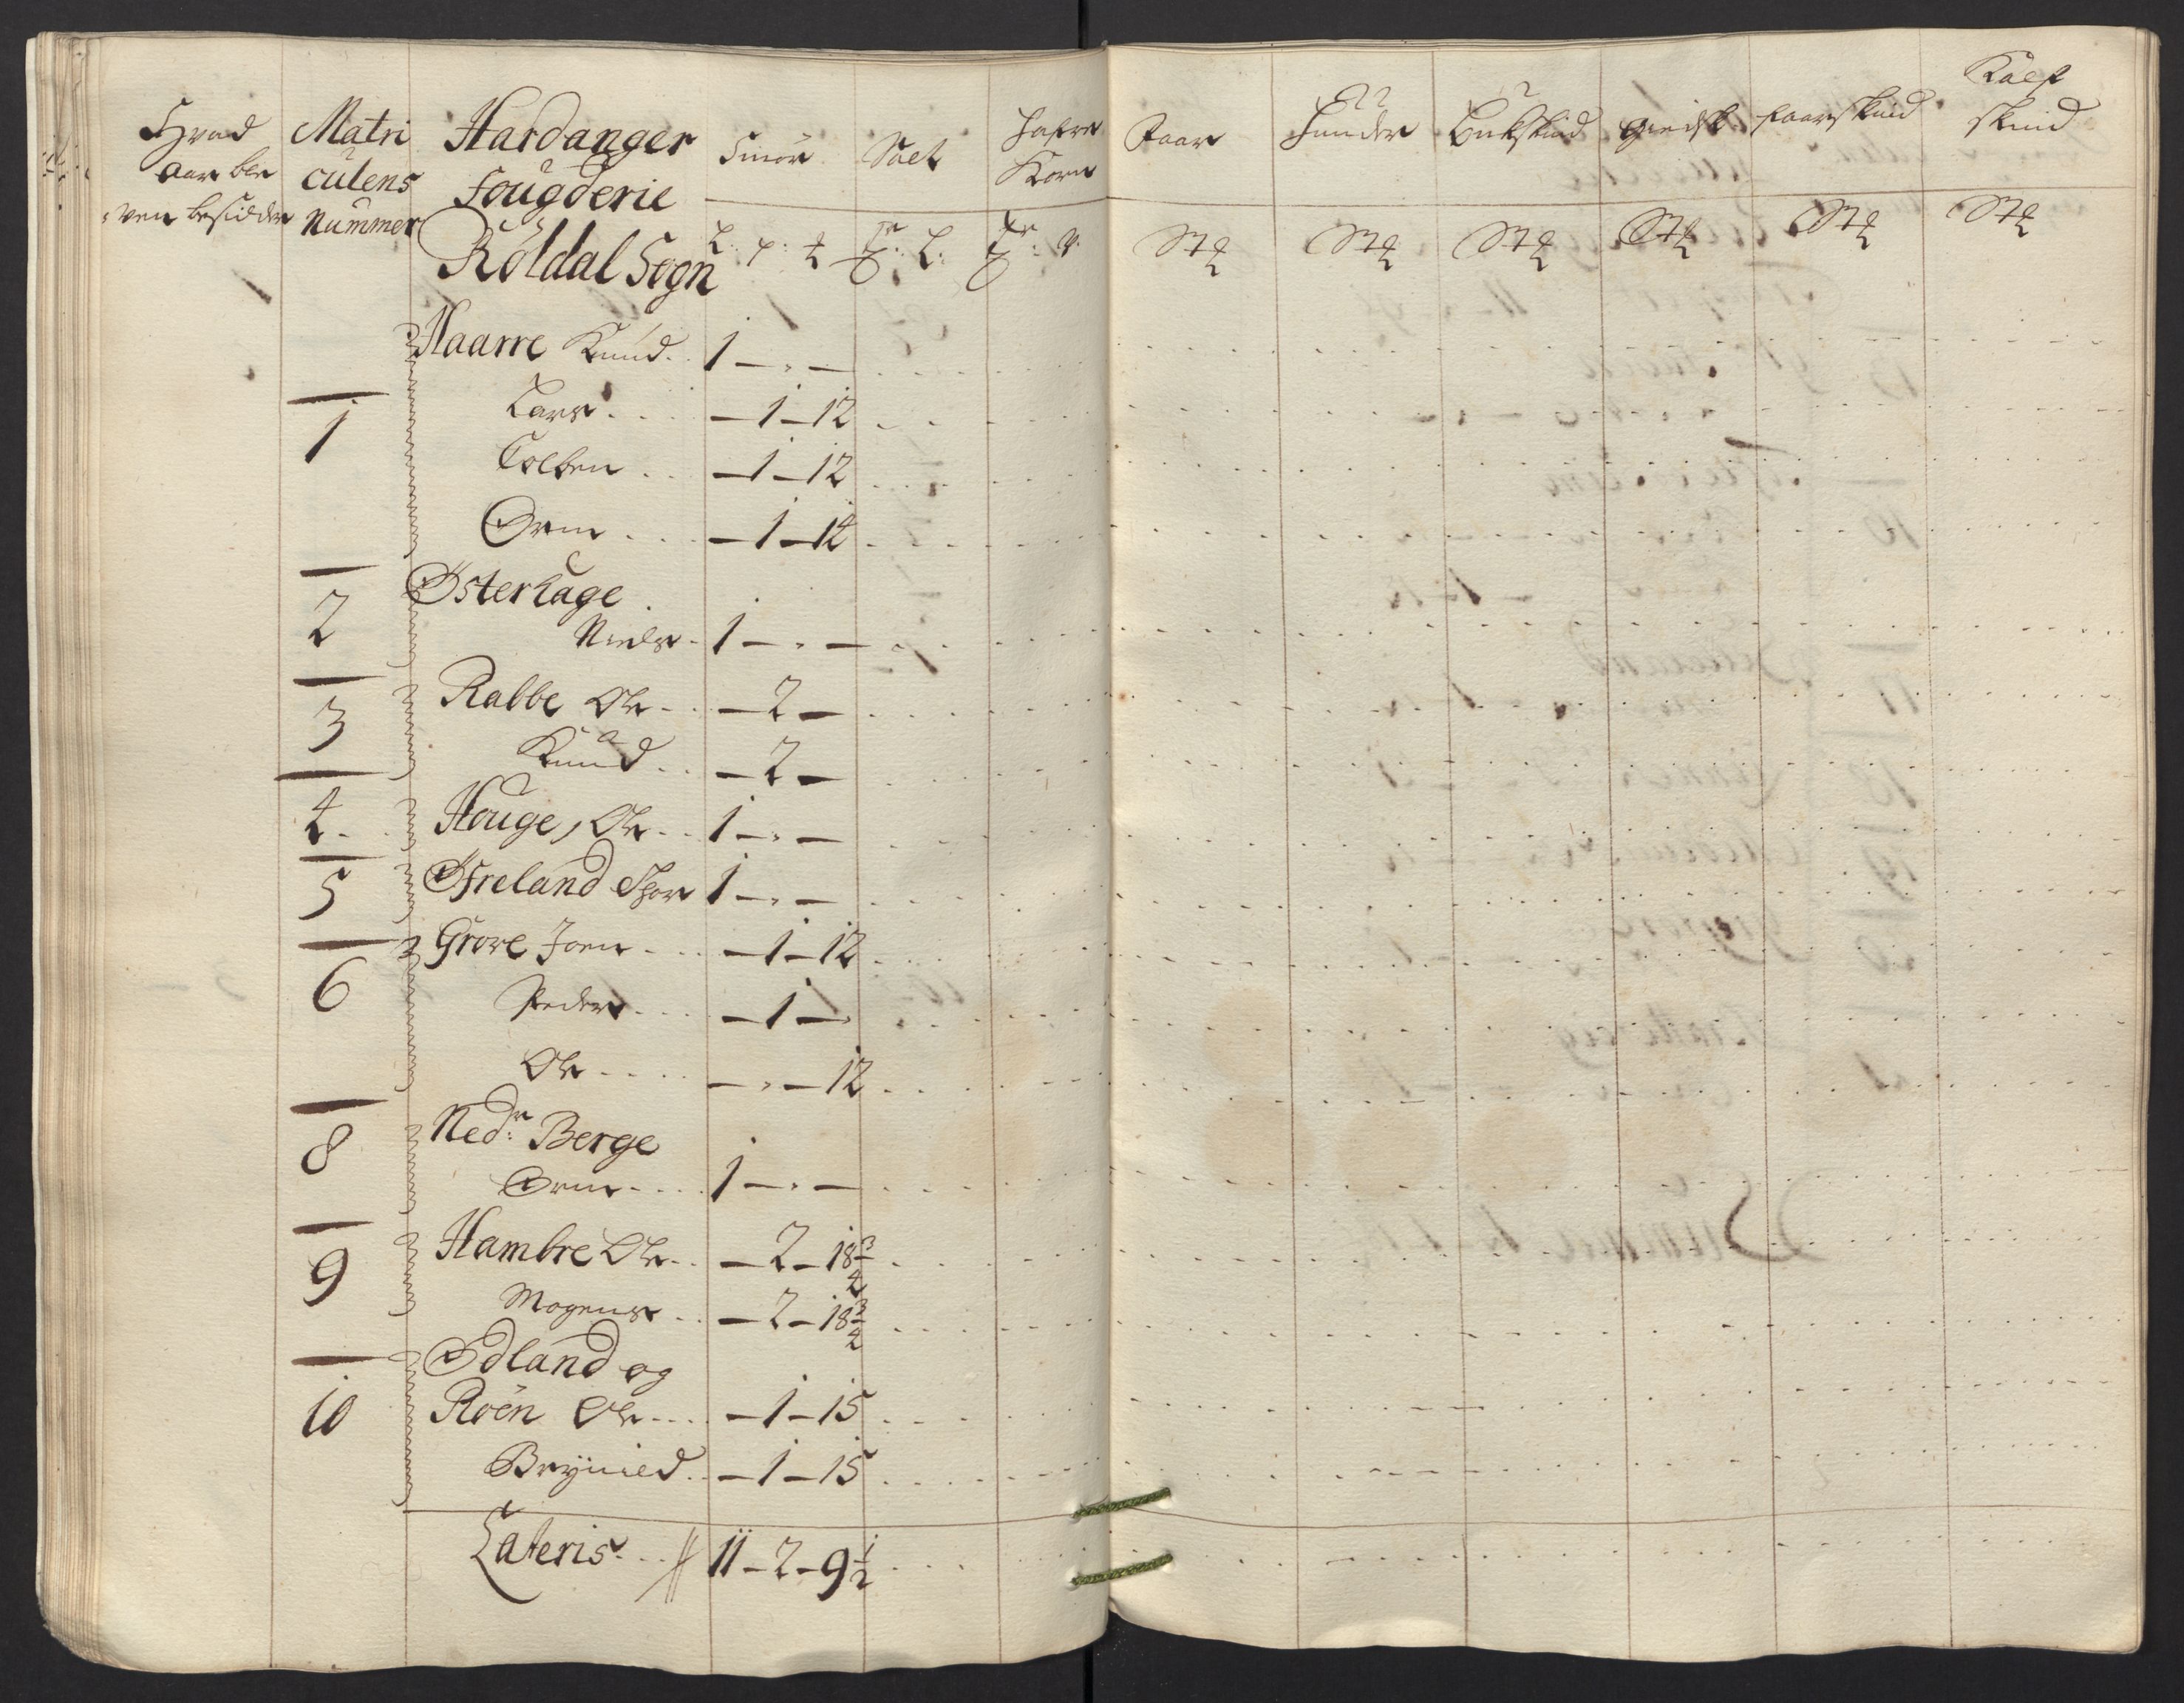 Hvad Aar ble
ven besidden
Matri
culens
Nummer
Hardanger
Fougderie
Röldal Sogn
Smör
Salt
Hafre
Korn
Faar
Huuder
Bukskind
giedsk
faarskind
Kalf
skind
Stk Stk Stk Stk Stk Stk
1 Haarre Knud.. 1 – „ –
Lars.... – 1 – 12
Tolben.. – 1 – 12
Orm... – 1 – 12
2 Østerhage
Niels. 1 – „ –
3 Rabbe Ole.. – 2 –
Knud.. – 2 –
4. Houge, Ole.. 1 – „ –
5 Øfreland Thor 1 – „ –
6 Grove Joen.... – 1 – 12
Peder.... – 1 – „
Ole.... – „ – 12
8 Nedr: Berge
Orm.... 1 – „ –
9 Hambre Ole.. – 2 – 18 3/4
Mogens.. – 2 – 18 3/4
10 Ødland og
Röen Ole.... – 1 – 15
Brynild.. – 1 – 15
Lateris... 11 – 2 – 9 1/2